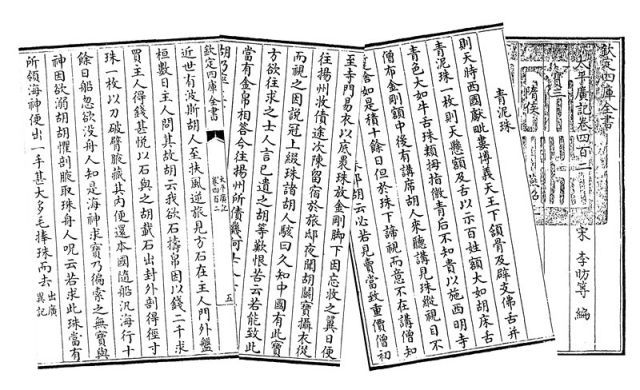 欽定四庫全書
太平廣記卷四百
宋 李昉等 編
青泥珠
則天時西國獻毗婁博義天王下頷骨及辟支佛舌并
青泥珠一枚則天懸頷及舌以示百姓頷大如胡床舌
青色大如牛舌珠類拇指微青后不知貴以施西明寺
僧布金剛額中後有講席胡人來聽講見珠縱視目不
暫捨如是積十餘日但於珠下諦視而意不在講僧知
耶胡云必若見賣當致重價僧初
至寺門易衣以底裹珠放金剛脚下因忘收之翼日便
往揚州收債途次陳留宿於旅邸夜聞胡鬭寶攝衣從
而視之因説冠上綴珠諸胡人駭曰久知中國有此寶
方欲往求之士人言已遺之胡等歎恨告云若能致此
當有金帛相答今往揚州所債幾何士人
胡乃
欽定四庫全書
五
近世有波斯胡人至扶風逆旅見方石在主人門外盤
桓數日主人問其故胡云我欲石擣帛因以錢二千求
買主人得錢甚悦以石與之胡載石出封外剖得徑寸
珠一枚以刀破臂腋藏其内便還本國隨船汎海行十
餘日船忽欲没舟人知是海神求寶乃徧索之無寶與
神因欲溺胡胡懼剖腋取珠舟人呪云若求此珠當有
所領海神便出一手甚大多毛捧珠而去 出廣異記